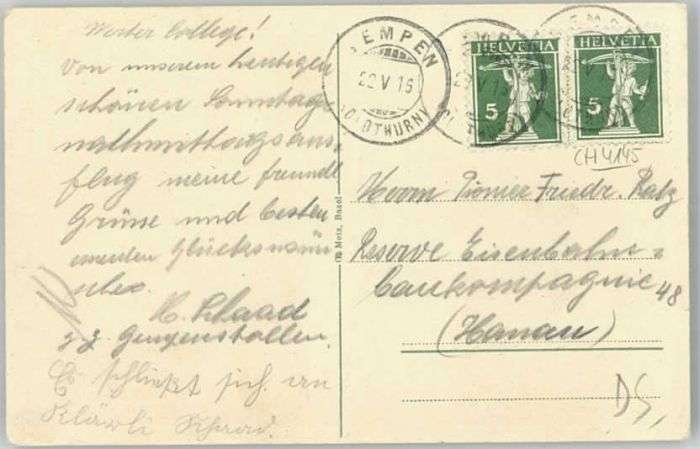 Werter College!
Von unserem heutigen
schönen Sonntag-
nachmittagsaus-
flug meine freundl
Grüsse und besten
Glückswün-
sche.
K. Schaad
z. Z.
Es schließt sich an
Kläwli Schaad.
Metz, Basel
KEMPEN
22 V 16
SOLOTHURN
HELVETIA
5
HELVETIA
5
CH 4145
Herrn Pionier Friedr. Ratz
Reserve Eisenbahn-
baukompagnie 48
(Hanau)
DS,